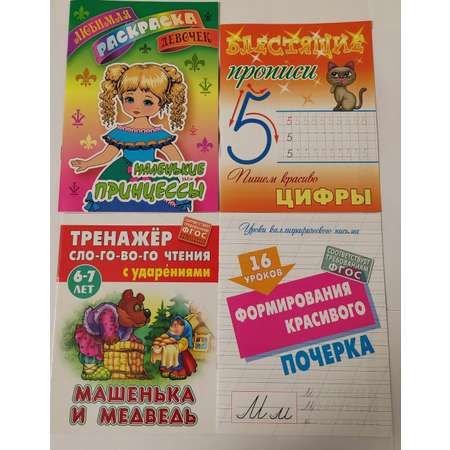 ЛЮБИМАЯ
РАСКРАСКА
ДЕВОЧЕК
МАЛЕНЬКИЕ
ПРИНЦЕССЫ
БЛЕСТЯЩИЕ
прописи
5
5
5
5
Пишем красиво
ЦИФРЫ
ТРЕНАЖЁР
СЛО-ГО-ВО-ГО ЧТЕНИЯ
с ударениями
СООТВЕТСТВУЕТ
ТРЕБОВАНИЯМ
ФГОС
6-7
ЛЕТ
МАШЕНЬКА
И МЕДВЕДЬ
Уроки каллиграфического письма
16
УРОКОВ
СООТВЕТСТВУЕТ
ТРЕБОВАНИЯМ
ФГОС
ФОРМИРОВАНИЯ
КРАСИВОГО
ПОЧЕРКА
М м
М
М
м